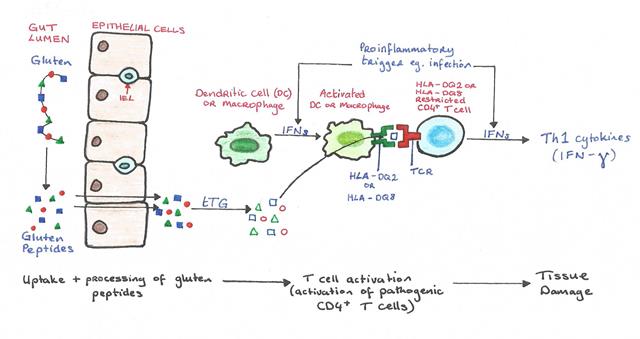 GUT
LUMEN
EPITHELIAL CELLS
Gluten
IEL
Gluten
Peptides
tTG
Dendritic Cell (DC)
OR macrophage
IFNs
Proinflammatory
trigger eg. infection
Activated
DC or Macrophage
HLA-DQ2 OR
HLA-DQ8
Restricted
CD4+ T cell
HLA-DQ2
OR
HLA-DQ8
TCR
IFNs
Th1 cytokines
(IFN-γ)
Uptake + processing of gluten
peptides
T cell activation
(activation of pathogenic
CD4+ T cells)
Tissue
Damage